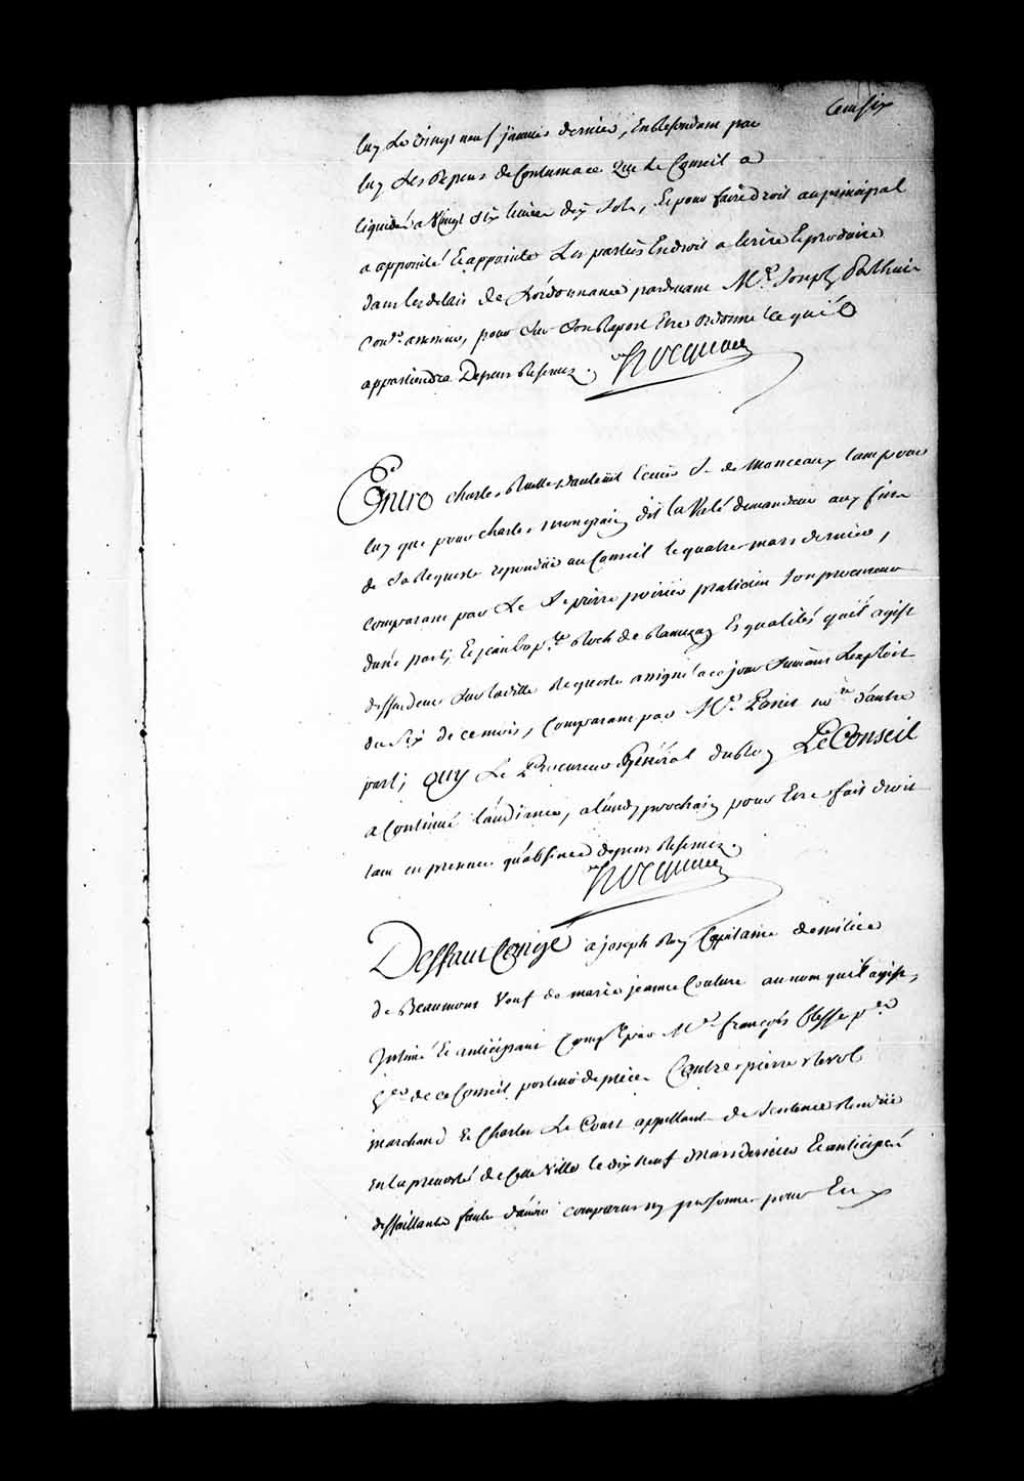 Cent six
luy le vingt neuf janvier dernier, En Refondant par
luy Les Depens de Contumace que Le Conseil a
liquidé a Vingt six livres dix sols, Et pour faire droit au principal
a appointé Et appointe Les parties En droit a Ecrire Et produire
dans les delais de L'ordonnance pardevant Me. Joseph
Coner. pour sur son Raport Etre ordonné ce qu'il
appartiendra Depens Reservez. Hocquart
Entre Charles Ruette Dauteuil Ecuier Sr. de Monceaux tant pour
luy que pour Charles Mongrain dit la demandeur aux fins
de sa Requeste repondüe au Conseil le quatre mars dernier,
Comparant par Le Sr. pierre poirier praticien son procureur
d'une part; Et jean bap.te Roch de Ramezay Es qualités qu'il agist
deffendeur sur la ditte Requeste assigné a ce jour suivant L'exploit
du six de ce mois, Comparant par Me. Panet no.re d'autre
part; Ouy Le Procureur General du Roy Le Conseil
a Continué l'audiance, a lundy prochain pour Etre fait droit
tant en presence qu'absence depens Reservez.
Hocquart
Deffaut Congé a joseph Roy Capitaine de milice
de Beaumont Veuf de marie jeanne Couture au nom qu'il agist,
Intimé Et anticipant Comp.t par Me. françois p.er
de ce Conseil porteur de pieces Contre pierre Revol
marchand Et Charles Le Court appellants de Sentence Rendüe
En la prevosté de Cette Ville le dix neuf Mars dernier Et anticipés
deffaillants faute d'avoir comparus ny personne pour Eux